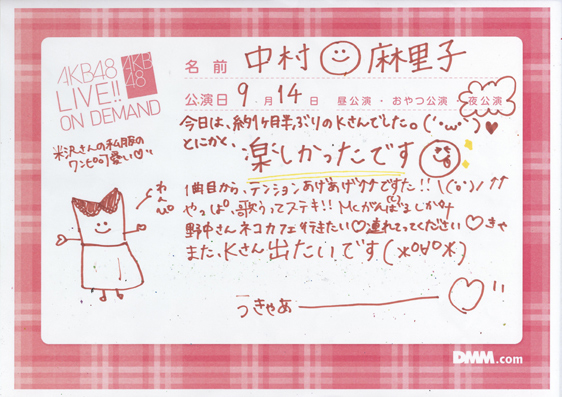 AKB48
LIVE!!
ON DEMAND
AKB
48
名前 中村 麻里子
公演日 9月14日 昼公演・おやつ公演・夜公演
今日は、約1ヶ月半ぶりのKさんでした。(´・ω・`)♥
とにかく、
楽しかったです
1曲目から、テンションあげあげ↑↑ですた!! \(^o^)/ ↑↑
やっぱ、歌うってステキ!! MCがんばる
野中さんネコカフェ行きたい♡連れてってください♡きゃ
また、Kさん出たいです(*°∀°*)
うきゃあ ♡"
米沢さんの私服の
ワンピ可愛い♡
わんぴ
DMM.com